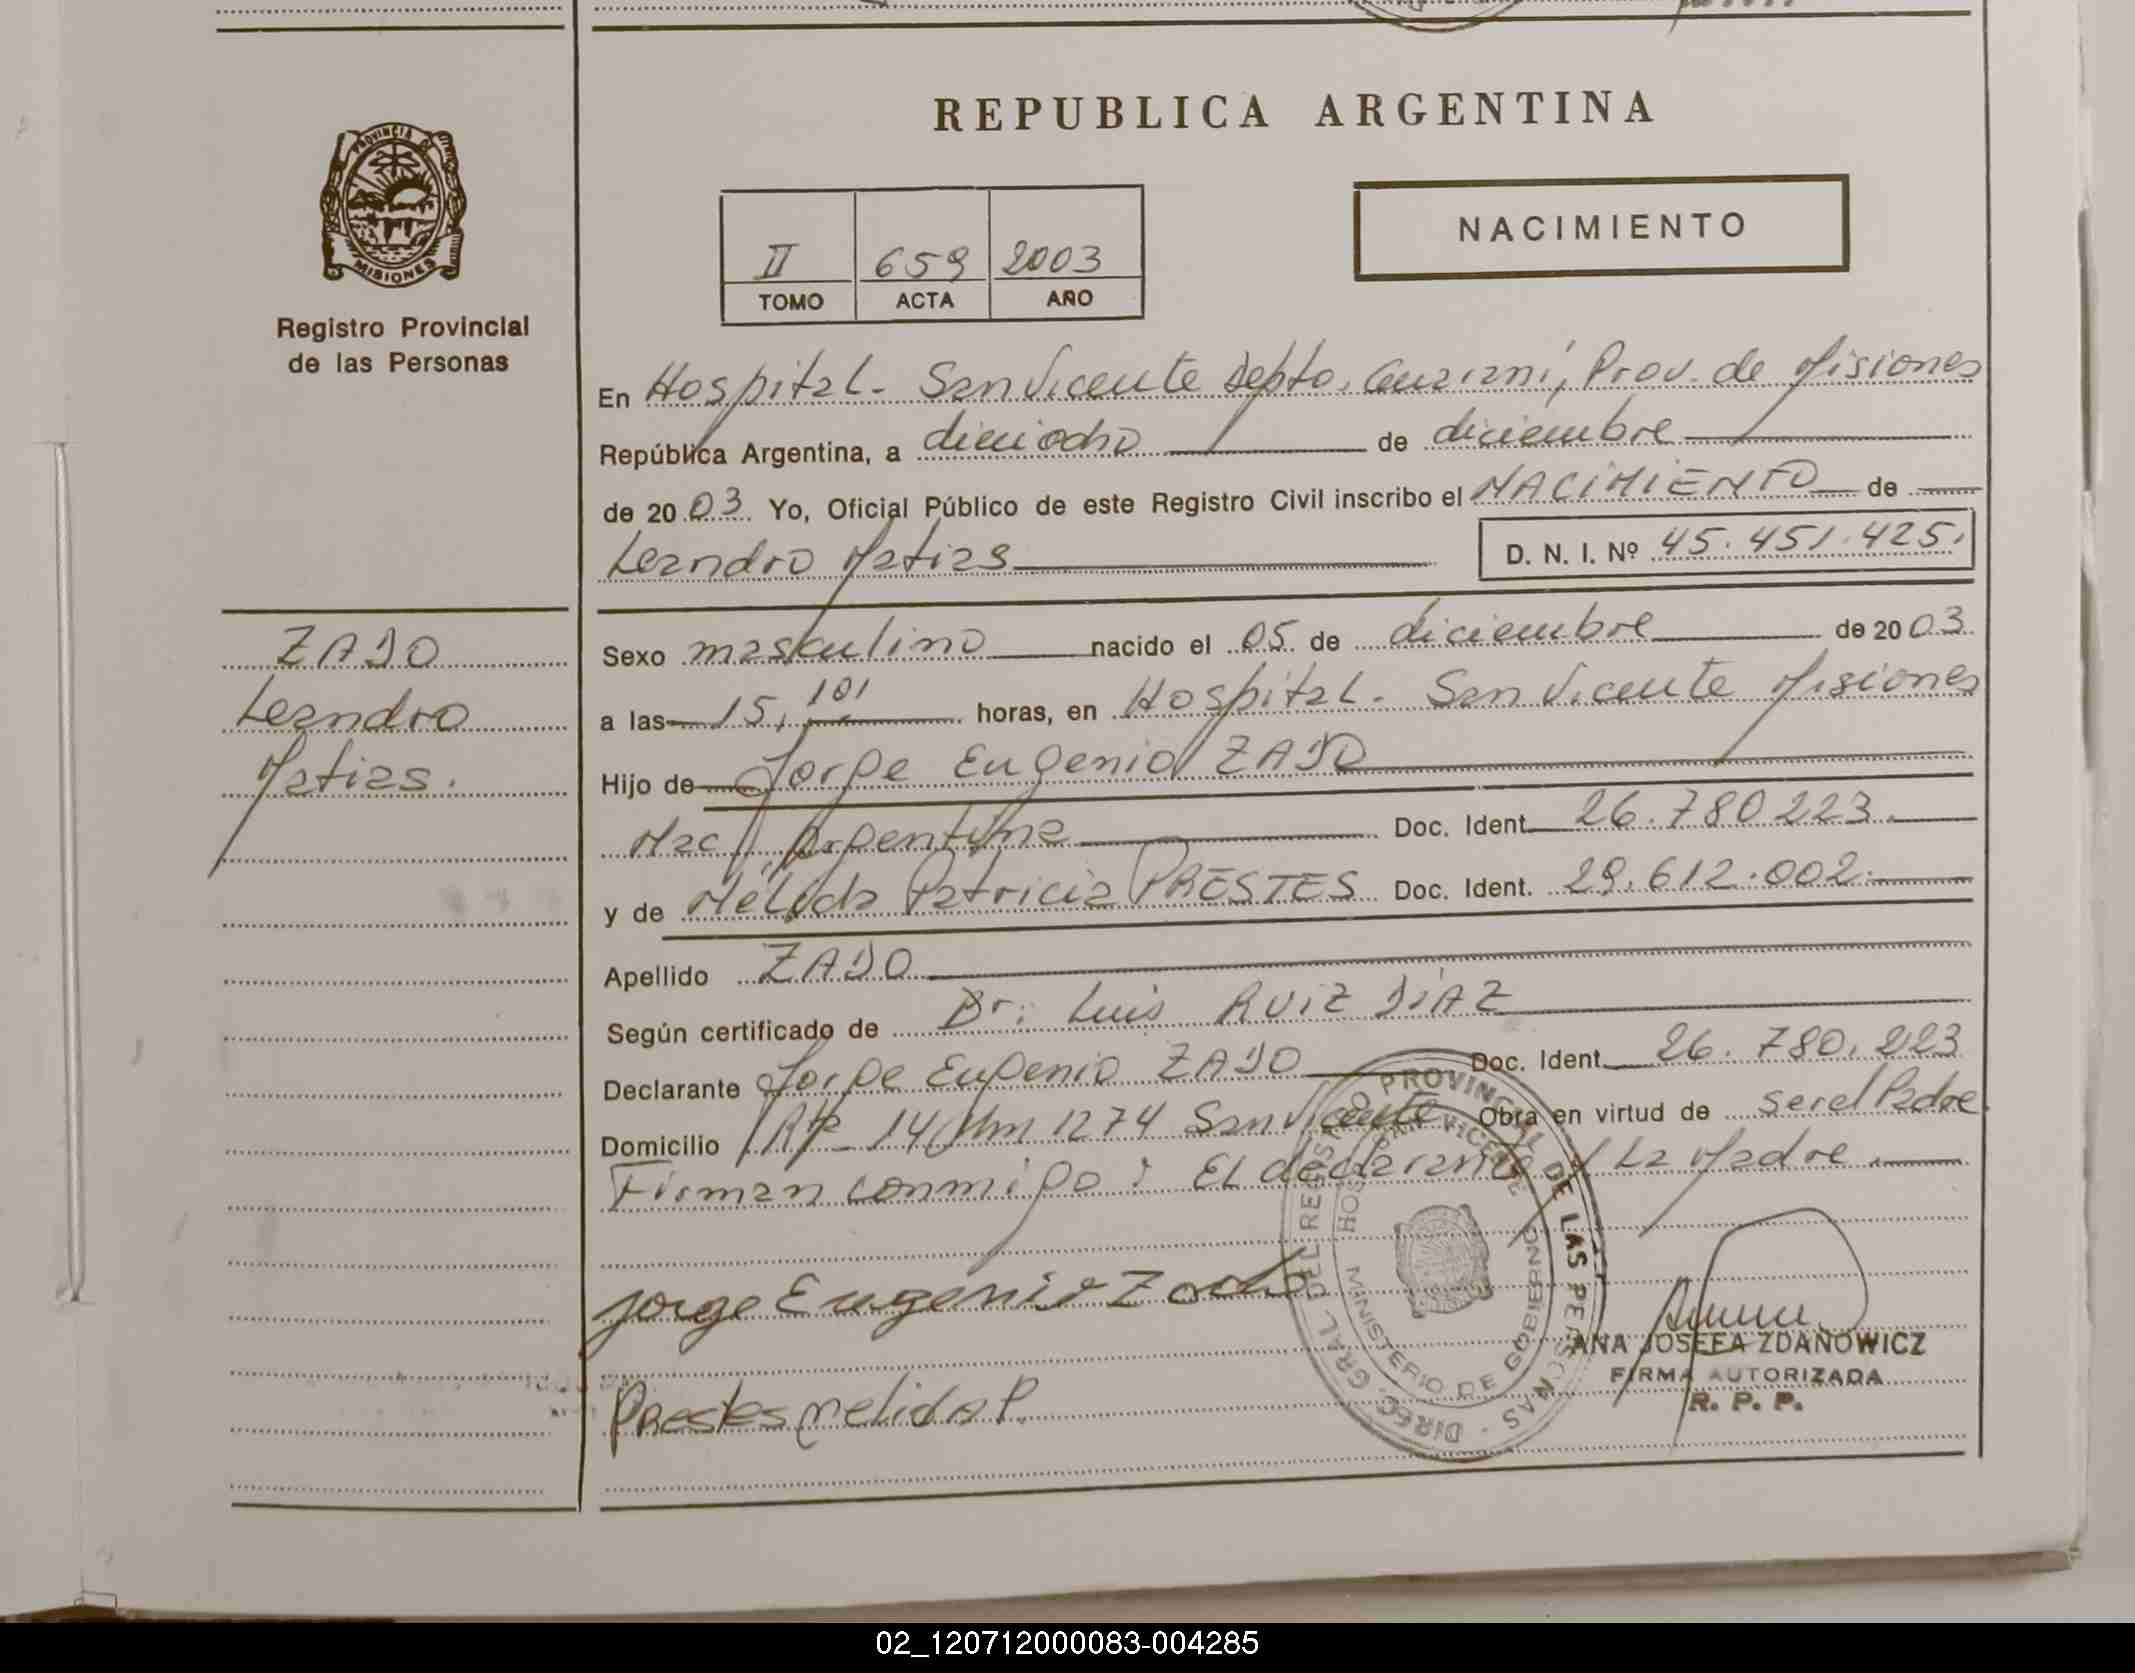 REPUBLICA ARGENTINA
PROVINCIA DE
MISIONES
Registro Provincial
de las Personas
II 659 2003
TOMO ACTA AÑO
NACIMIENTO
En Hospital - San Vicente Depto. Guaraní, Prov. de Misiones
República Argentina, a dieciocho de diciembre
de 2003 Yo, Oficial Público de este Registro Civil inscribo el NACIMIENTO de
Leandro Matias D. N. I. Nº 45.451.425.
ZADO
Leandro
Matias.
Sexo masculino nacido el 05 de diciembre de 2003
a las 15, horas, en Hospital - San Vicente Misiones
Hijo de Jorge Eugenio ZADO
Nac. Argentina Doc. Ident. 26.780.223.
y de Nélida Patricia PRESTES Doc. Ident. 29.612.002.
Apellido ZADO
Según certificado de Dr: Luis RUIZ DIAZ
Declarante Jorge Eugenio ZADO Doc. Ident. 26.780.223
Domicilio 14 Km 1274 San Vicente Obra en virtud de ser el Padre
Firman conmigo: El declarante y La Madre.
Jorge Eugenio Zado
Prestes Nelida P.
DIREC. GRAL. DEL REGISTRO PROVINCIAL DE LAS PERSONAS
HOSPITAL SAN VICENTE
MINISTERIO DE GOBIERNO
ANA JOSEFA ZDANOWICZ
FIRMA AUTORIZADA
R. P. P.
02_120712000083-004285